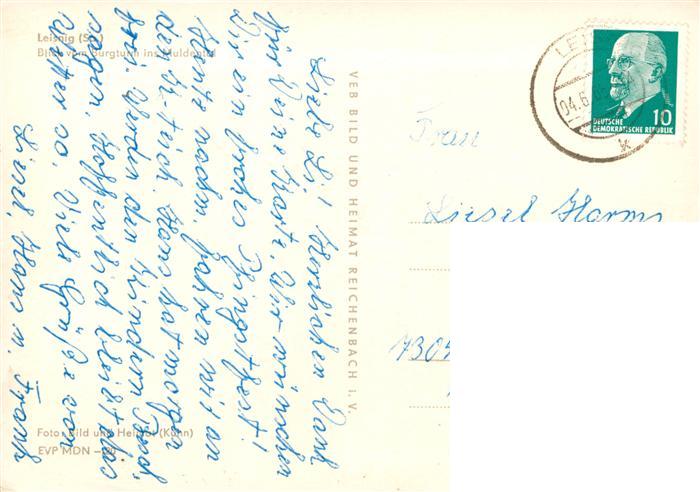 Leisnig (Sa.)
Blick vom Burgturm ins Muldental
Liebe Li! Herzlichen Dank
für Deine Karte. Wir wünschen
Dir ein frohes Pfingstfest!
Heute nachm. fahren wir an
den Teich. Hans hat morgen
frei. Werden den Kindern
sagen. Hoffentlich bleibt das
Wetter so. Viele Grüße von
Liesel, Hans u. Frank
VEB BILD UND HEIMAT REICHENBACH i. V.
Foto: Bild und Heimat (Kühn)
EVP MDN –,20
LEI
04.6.
DEUTSCHE
DEMOKRATISCHE REPUBLIK
10
k
Frau
Liesel Harms
7305